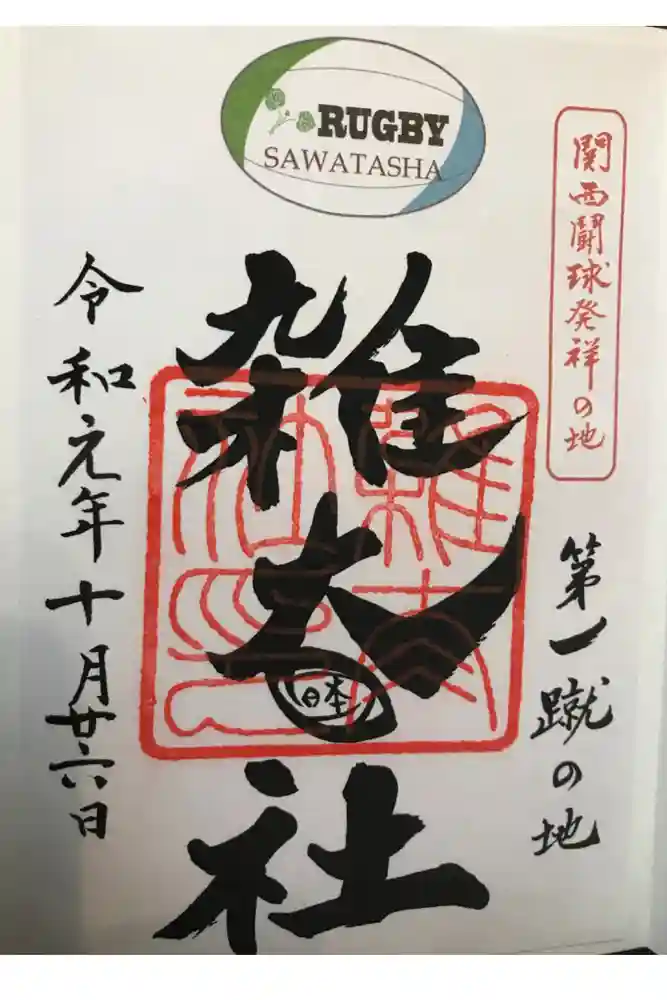 RUGBY
SAWATASHA
関西闘球発祥の地
第一蹴の地
雑太社
日本
令和元年十月廿六日